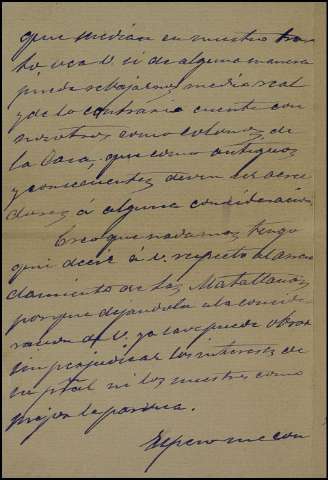 que median en nuestro tra
to vea V. si de alguna manera
puede rebajarnos medio real
y de lo contrario cuente con
nosotros como colonos de
la Casa, que como antiguos
y consecuentes deven ser acree
dores á alguna consideración
Creo que nada mas tengo
que decir á V. respecto al arren
damiento de las Matallanas
porque dejandola a la conside
racion de V. ya save puede obrar
sin perjudicar los intereses de
ni los nuestros como
mejor le paresca.
Espero me con